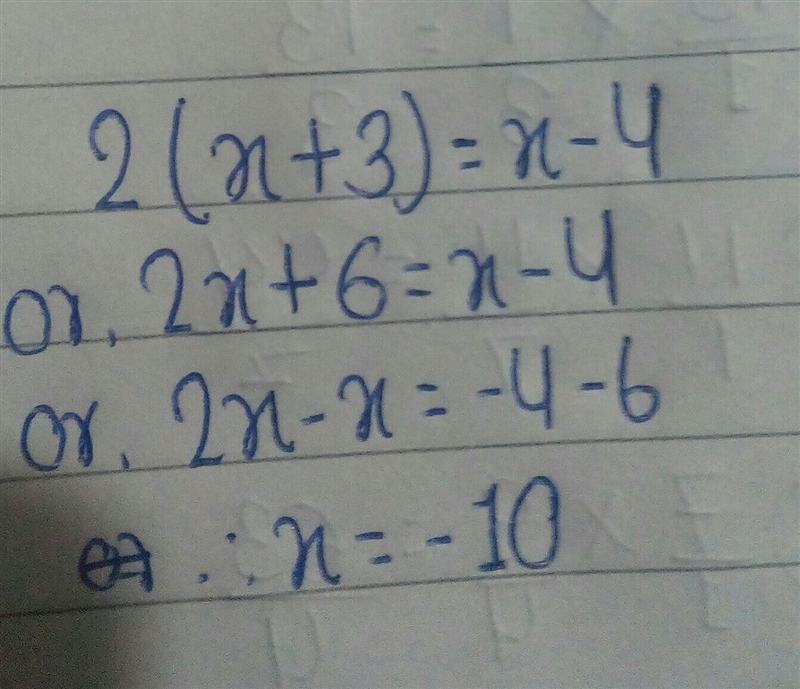 2(x+3)=x-4
or, 2x+6=x-4
or, 2x-x=-4-6
∴x=-10